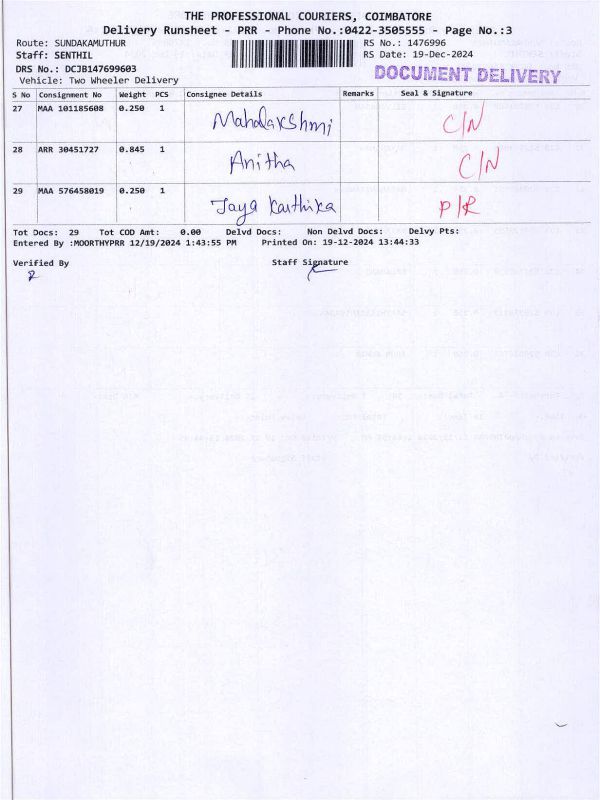 THE PROFESSIONAL COURIERS, COIMBATORE
Delivery Runsheet - PRR - Phone No.:0422-3505555 - Page No.:3
Route: SUNDAKAMUTHUR RS No.: 1476996
Staff: SENTHIL RS Date: 19-Dec-2024
DRS No.: DCJB147699603 DOCUMENT DELIVERY
Vehicle: Two Wheeler Delivery
S No Consignment No Weight PCS Consignee Details Remarks Seal & Signature
27 MAA 101185608 0.250 1 Mahalakshmi C/N
28 ARR 30451727 0.845 1 Anitha C/N
29 MAA 576458019 0.250 1 Jaya Karthika P/R
Tot Docs: 29 Tot COD Amt: 0.00 Delvd Docs: Non Delvd Docs: Delvy Pts:
Entered By :MOORTHYPRR 12/19/2024 1:43:55 PM Printed On: 19-12-2024 13:44:33
Verified By Staff Signature